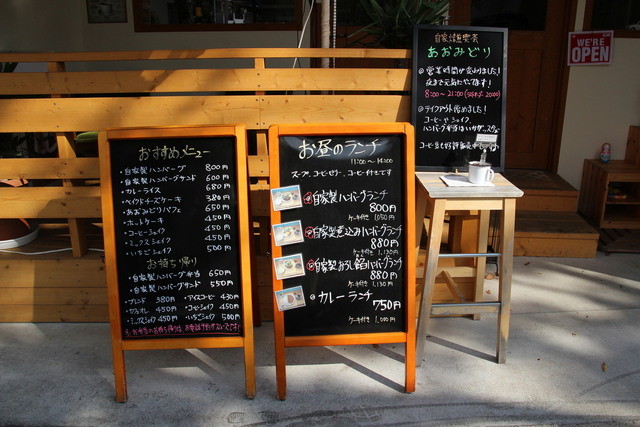 おすすめメニュー
・自家製ハンバーグ 800円
・自家製ハンバーグサンド 600円
・カレーライス 680円
・ベイクドチーズケーキ 380円
・あおみどりパフェ 650円
・ホットケーキ 450円
・コーヒーシェイク 450円
・ミックスシェイク 450円
・いちごシェイク 500円
お持ち帰り
・自家製ハンバーグ弁当 650円
・自家製ハンバーグサンド 550円
・ブレンド 380円
・アイスコーヒー 430円
・カフェオレ 450円
・コーヒーシェイク 450円
・ミックスシェイク 450円
・いちごシェイク 500円
お昼のランチ
11:00～14:00
スープ、コーヒーゼリー、コーヒー付きです
自家製ハンバーグランチ
800円
ケーキ付き 1,050円
自家製煮込みハンバーグランチ
880円
ケーキ付き 1,130円
自家製おろし和風ハンバーグランチ
880円
ケーキ付き 1,130円
カレーランチ
750円
ケーキ付き 1,000円
自家焙煎珈琲
あおみどり
営業時間が変わりました!
夜まで元気にやってます!
8:00～21:00
テイクアウト始めました!
コーヒーやシェイク、
WE'RE
OPEN